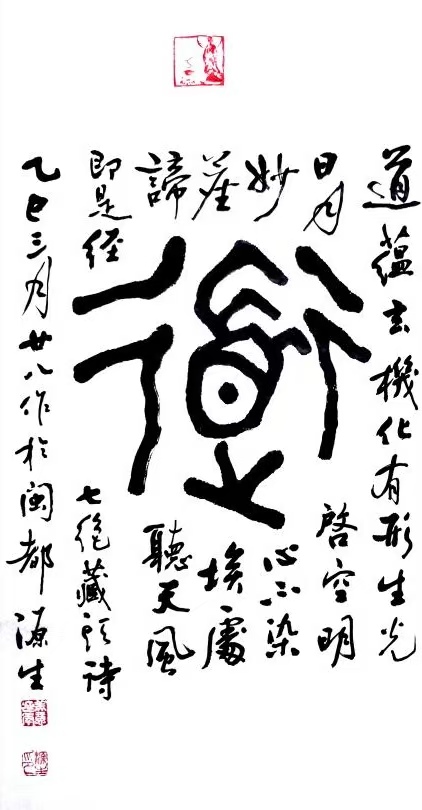 道蘊玄機化有形生光
日月啓空明
妙心不染
塵埃處
諦聽天風
即是経
道
七絕藏頭詩
乙巳三月廿八作於閩都源生